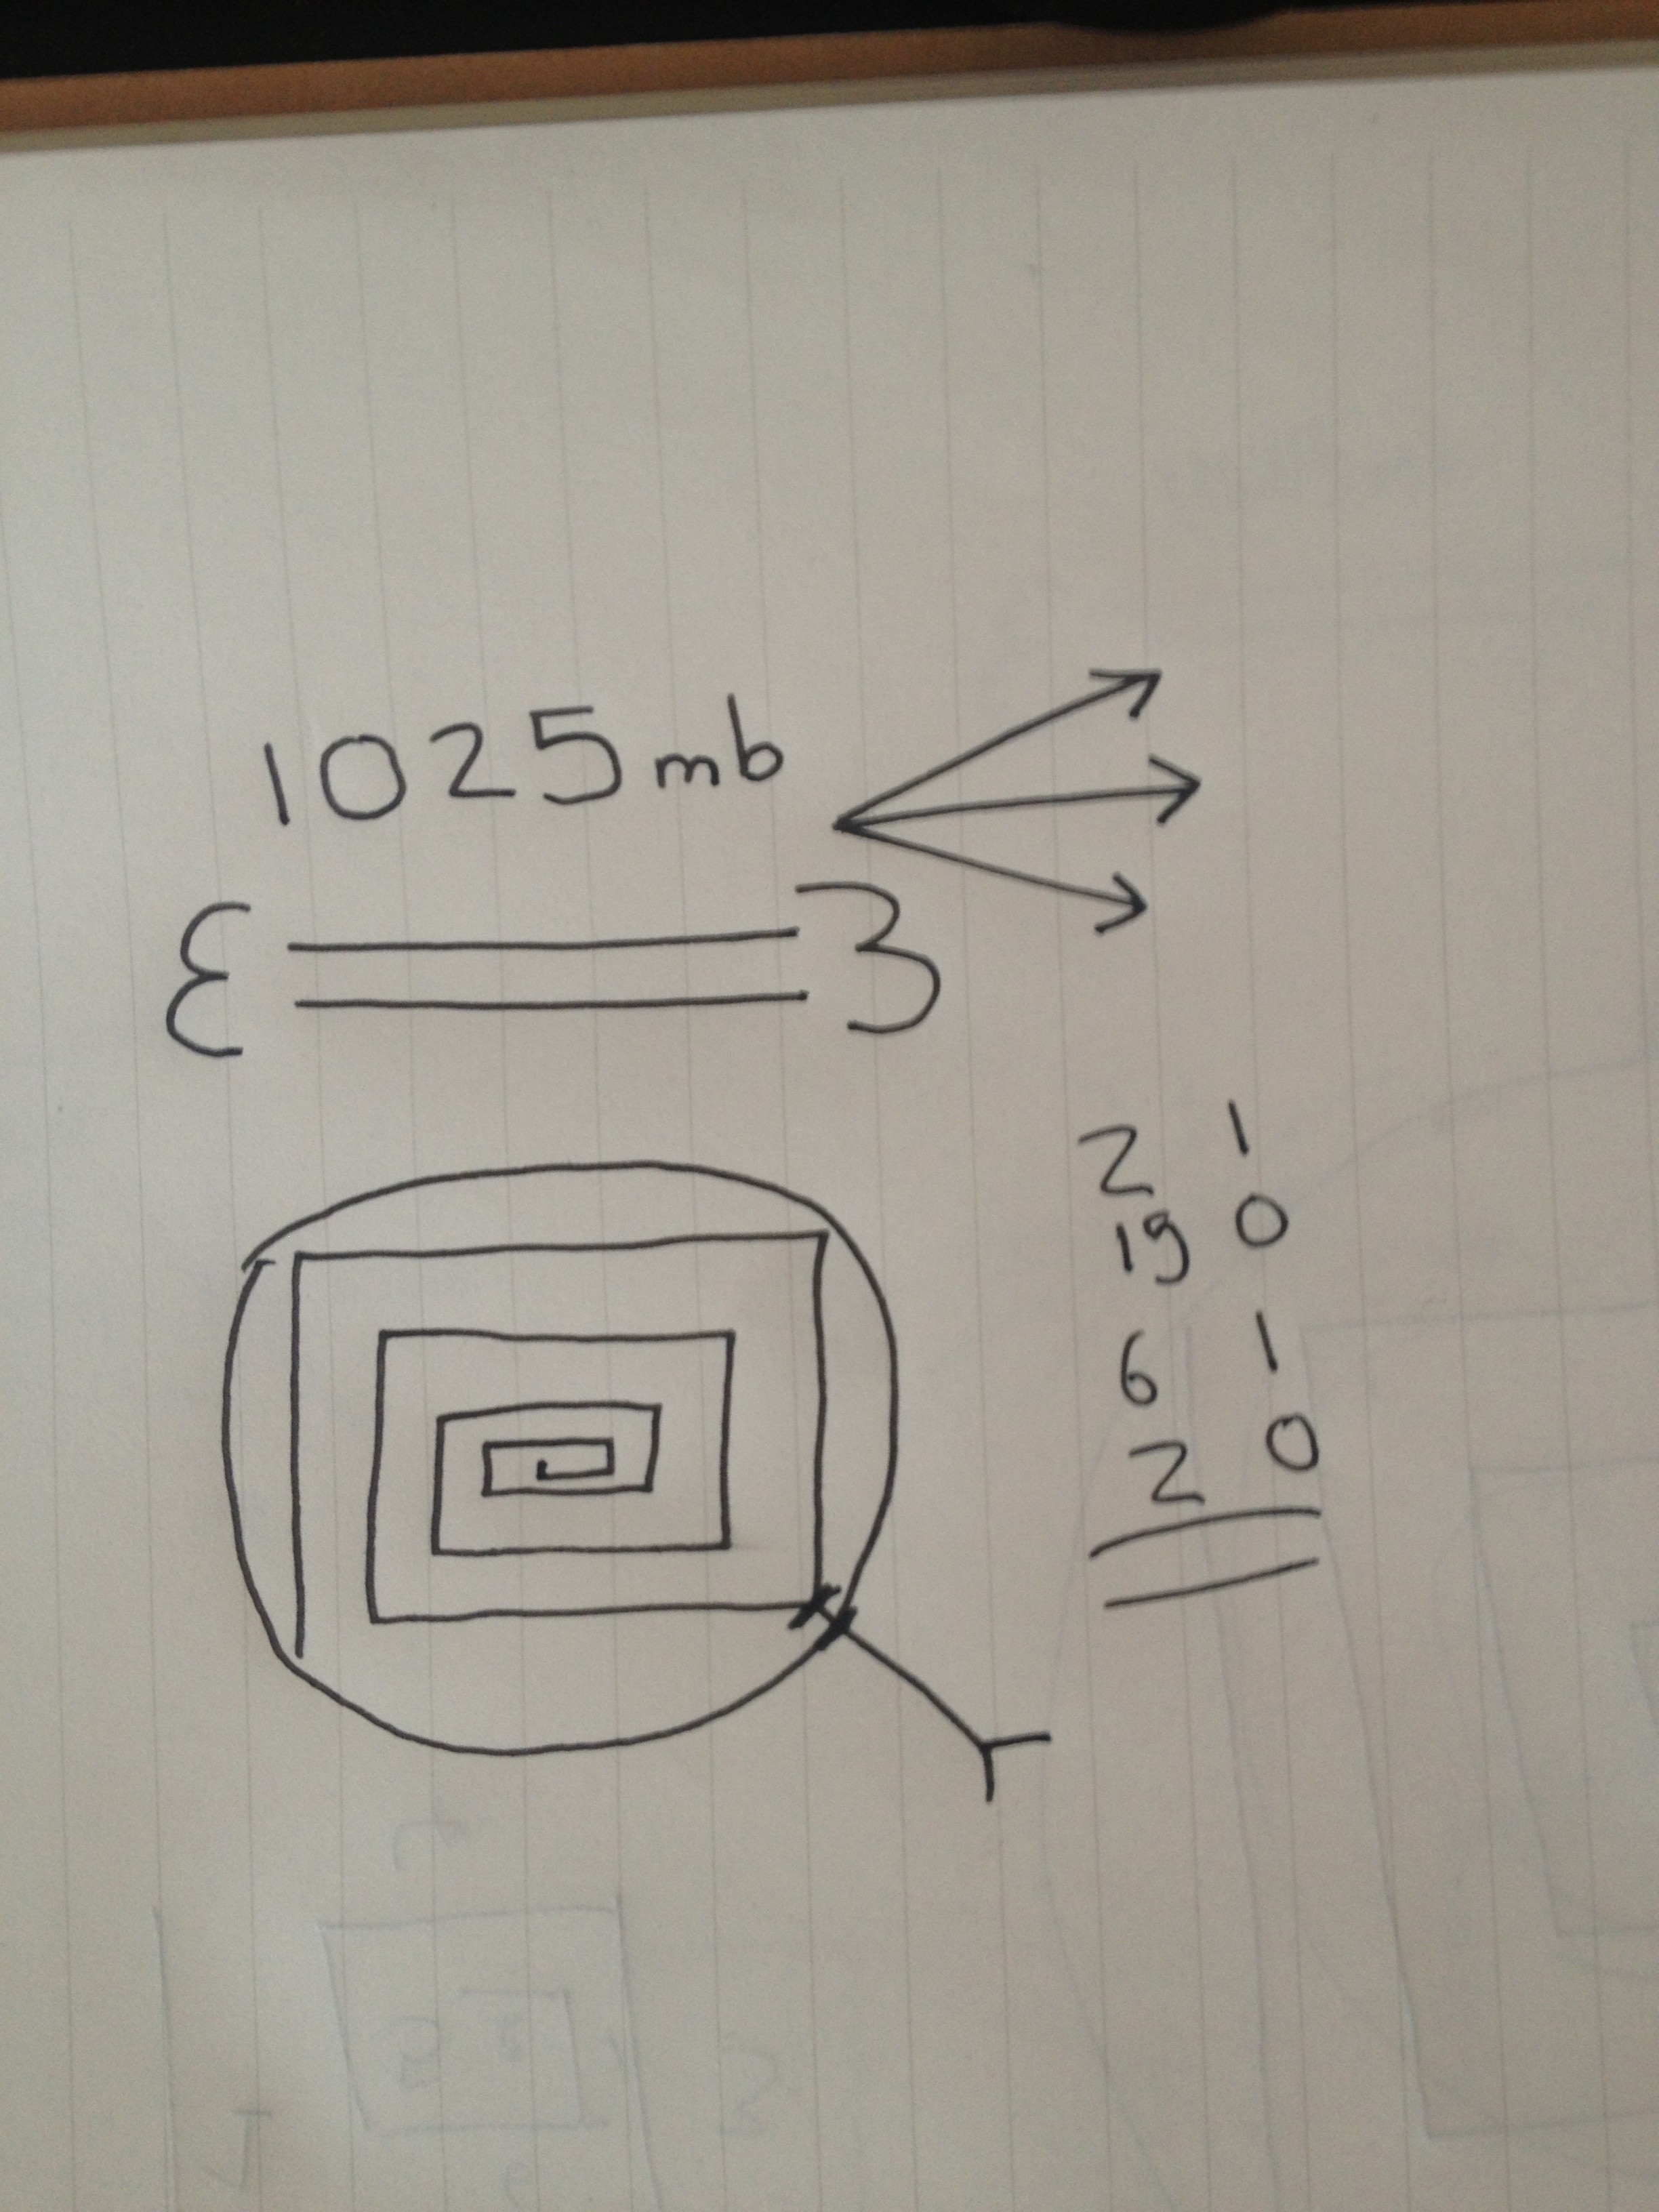 1025mb
ε 3
2 1
19 0
6 1
2 0